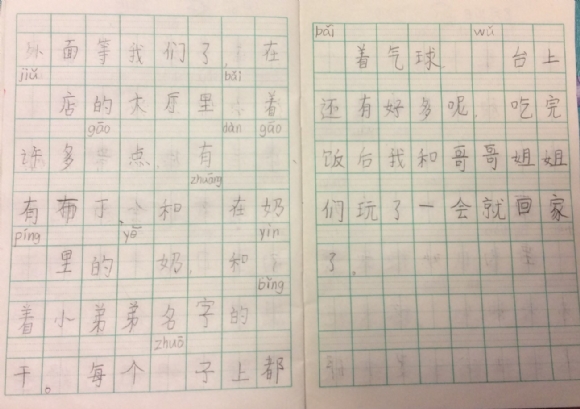 外面等我们了，在
jiǔ bǎi
店的大厅里，着
gāo dàn gāo
许多 点 有
zhuāng
有布丁、和 在奶
píng yē yìn
里的 奶，和
bǐng
着小弟弟名字的
zhuō
干。每个 子上都
bǎi wǔ
着气球， 台上
还有好多呢。吃完
饭后我和哥哥姐姐
们玩了一会就回家
了。